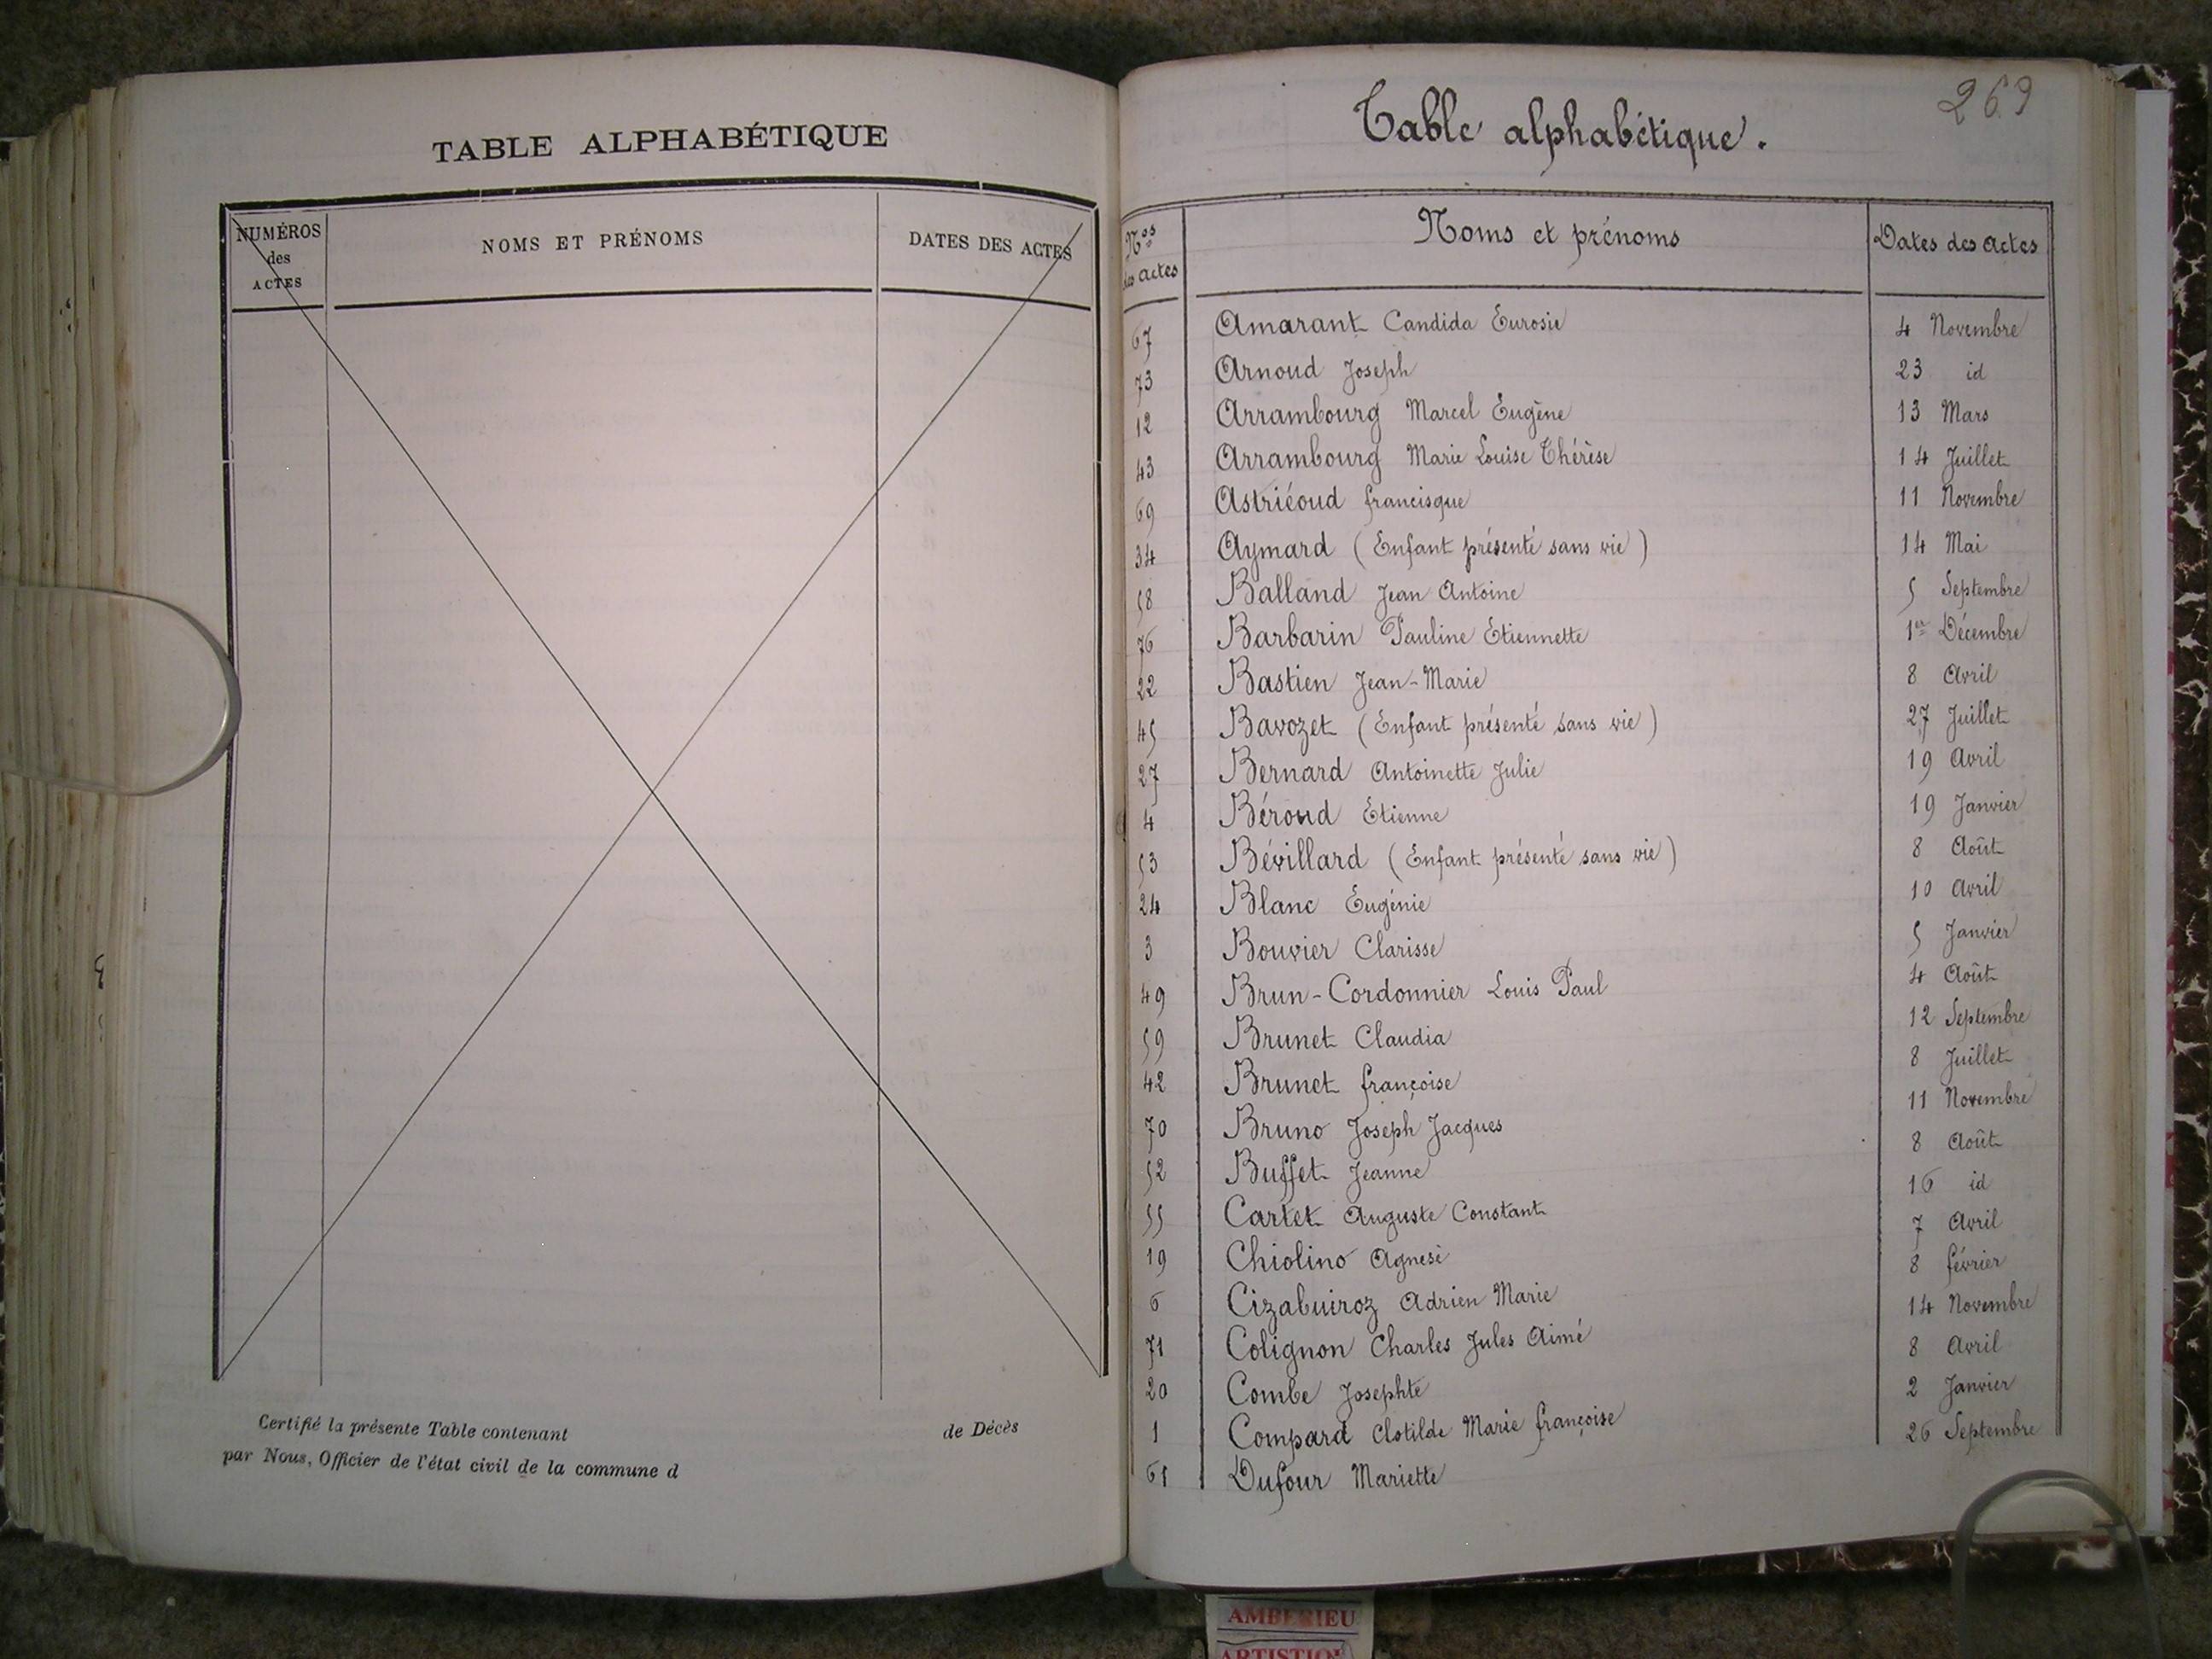 TABLE ALPHABÉTIQUE
NUMÉROS des ACTES NOMS ET PRÉNOMS DATES DES ACTES
Certifié la présente Table contenant de Décès
par Nous, Officier de l'état civil de la commune d
269
Table alphabétique.
Nos des actes Noms et prénoms Dates des actes
67 Amarant Candida Eurosie 4 Novembre
73 Arnoud Joseph 23 id
12 Arrambourg Marcel Eugène 13 Mars
43 Arrambourg Marie Louise Thérèse 14 Juillet
69 Astriéoud francisque 11 Novembre
34 Aymard (Enfant présenté sans vie) 14 Mai
58 Balland Jean Antoine 5 Septembre
76 Barbarin Pauline Etiennette 1er Décembre
22 Bastien Jean-Marie 8 Avril
45 Bavozet (Enfant présenté sans vie) 27 Juillet
27 Bernard Antoinette Julie 19 Avril
4 Béroud Etienne 19 Janvier
53 Bévillard (Enfant présenté sans vie) 8 Août
24 Blanc Eugénie 10 Avril
3 Bouvier Clarisse 5 Janvier
49 Brun-Cordonnier Louis Paul 4 Août
59 Brunet Claudia 12 Septembre
42 Brunet françoise 8 Juillet
70 Bruno Joseph Jacques 11 Novembre
52 Buffet Jeanne 8 Août
55 Cartet Auguste Constant 16 id
19 Chiolino Agnesè 7 Avril
6 Cizabuiroz Adrien Marie 8 février
71 Colignon Charles Jules Aimé 14 Novembre
20 Combe Josephte 8 Avril
1 Compard Clotilde Marie françoise 2 Janvier
61 Dufour Mariette 26 Septembre
AMBERIEU